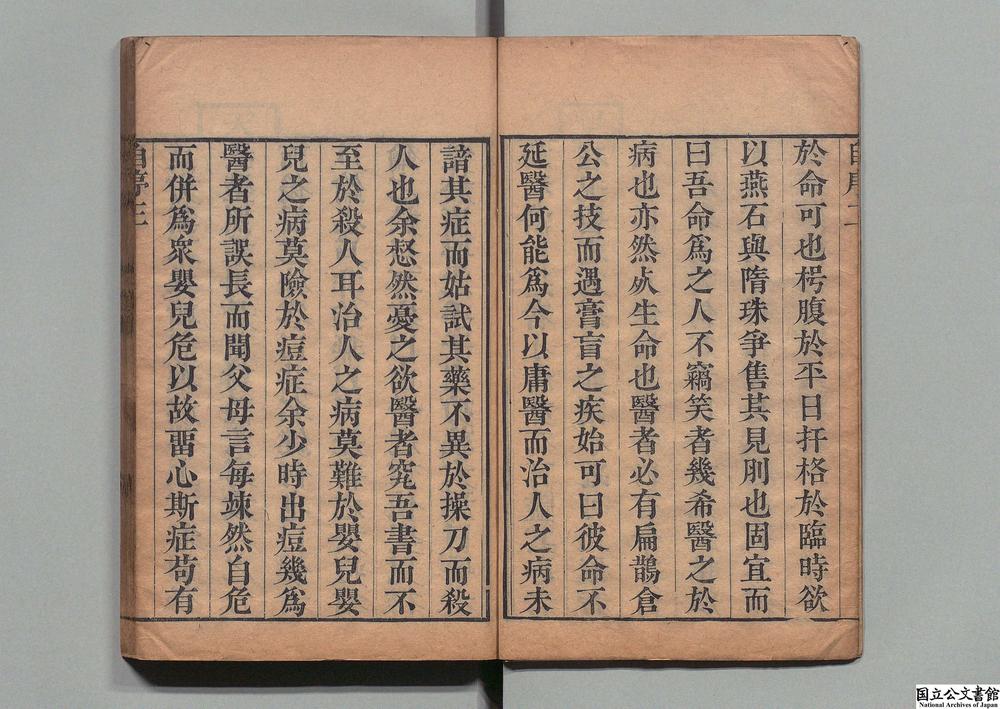 自序 二
於命可也枵腹於平日扞格於臨時欲
以燕石與隋珠爭售其見刖也固宜而
曰吾命爲之人不竊笑者幾希醫之於
病也亦然夫生命也醫者必有扁鵲倉
公之技而遇膏盲之疾始可曰彼命不
延醫何能爲今以庸醫而治人之病未
諳其症而姑試其藥不異於操刀而殺
人也余惄然憂之欲醫者究吾書而不
至於殺人耳治人之病莫難於嬰兒嬰
兒之病莫險於痘症余少時出痘幾爲
醫者所誤長而聞父母言每竦然自危
而併爲衆嬰兒危以故畱心斯症苟有
自序 三
国立公文書館
National Archives of Japan